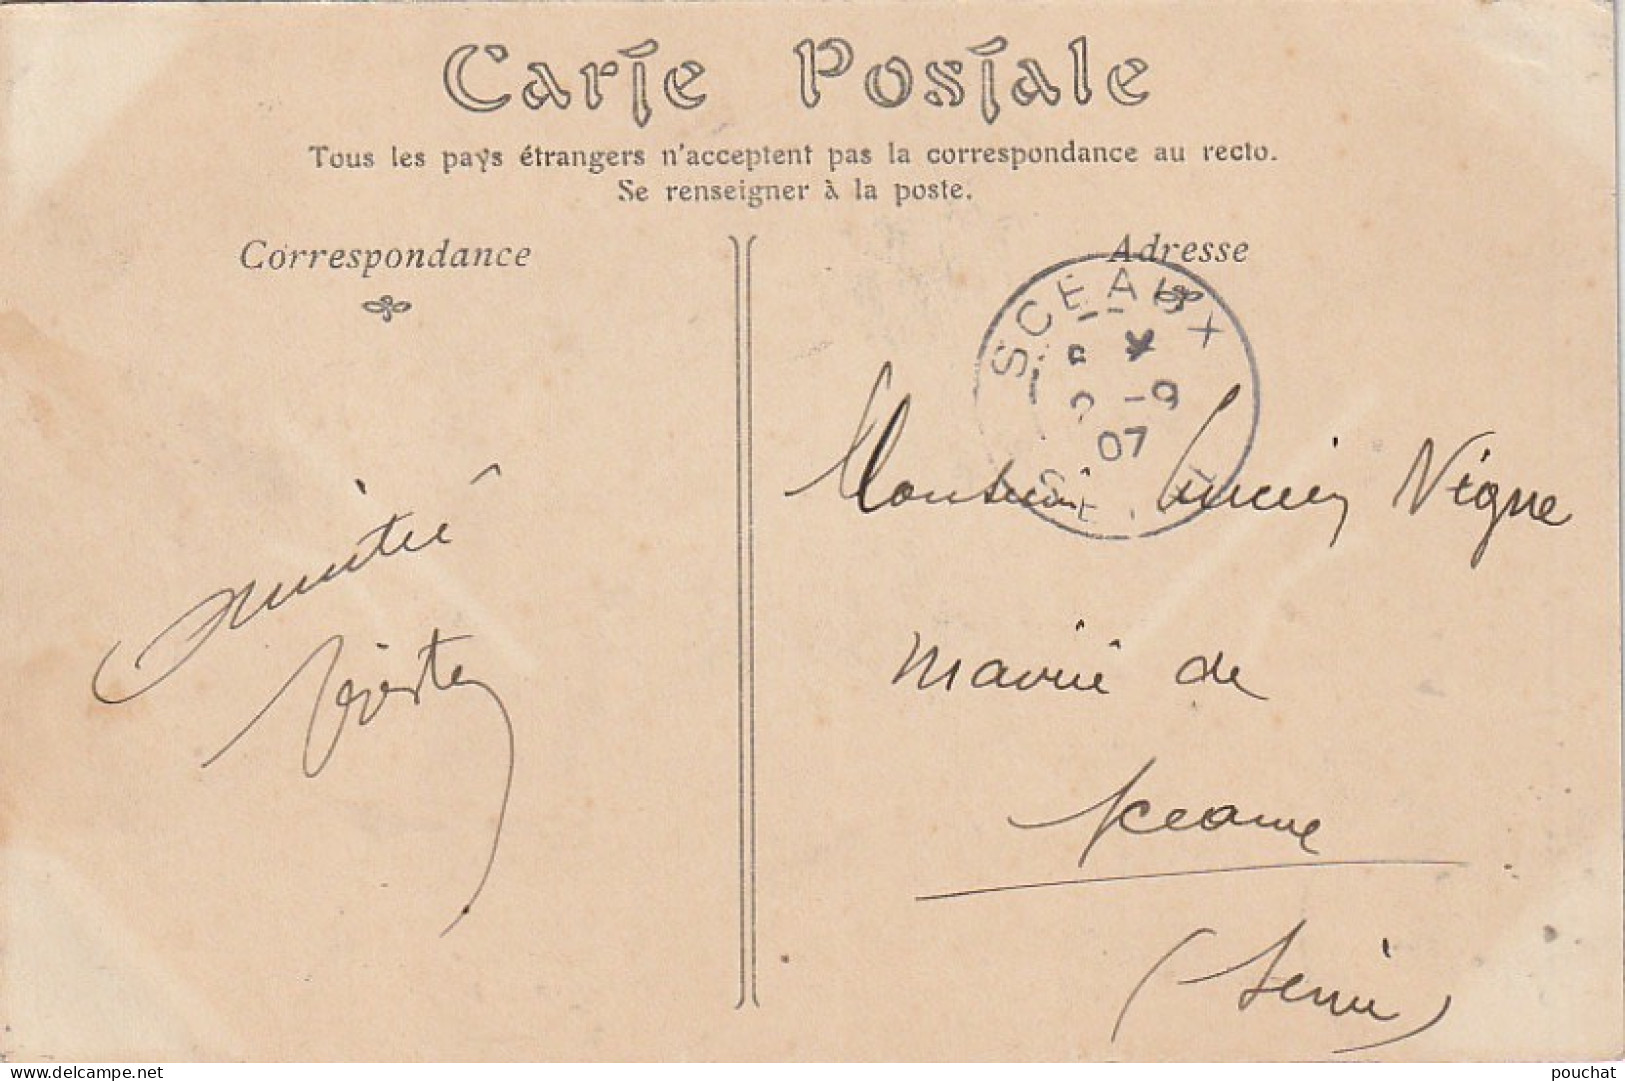 Carte Postale
Tous les pays étrangers n'acceptent pas la correspondance au recto.
Se renseigner à la poste.
Correspondance
Adresse
SCEAUX
-9
07
SEINE
Amitié
Monsieur Lucien Vigne
Mairie de
Sceaux
(Seine)
delcampe.net
pouchat